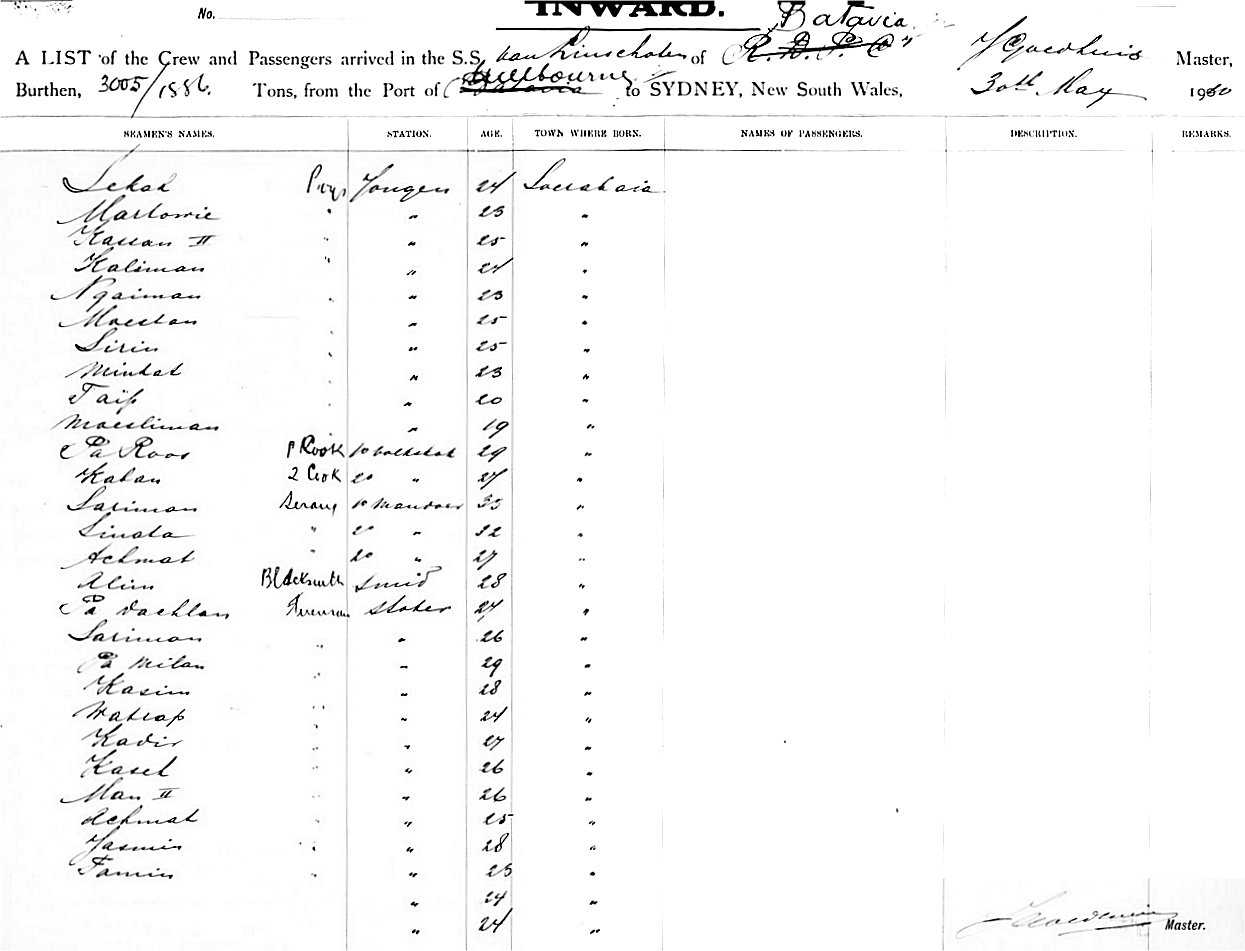 INWARD.
No.
Batavia
A LIST of the Crew and Passengers arrived in the S.S. van Linschoten of R. D. P. Cy J Goedhuis Master,
Melbourne
Burthen, 3005/1886. Tons, from the Port of Batavia to SYDNEY, New South Wales, 30th May 1910
SEAMEN'S NAMES. STATION. AGE. TOWN WHERE BORN. NAMES OF PASSENGERS. DESCRIPTION. REMARKS.
Sekak Boys Jongen 24 Soerabaia
Martowie " " 23 "
Kassan II " " 25 "
Kaliman " " 24 "
Ngaiman " " 23 "
Moestan " " 25 "
Sirin " " 25 "
Minhat " " 23 "
Taïp " " 20 "
Moesliman " 19 "
Pa Roos 1 Cook 1e 29 "
Kaban 2 Cook 2e " 27 "
Sariman Serang 1e Mandoer 35 "
Sinata " 2e " 32 "
Achmat " 2e " 27 "
Alim Blacksmith Smid 28 "
Pa Dachlan Fireman Stoker 24 "
Sariman " " 26 "
Pa Milan " " 29 "
Kasim " " 28 "
Watrap " " 24 "
Kadir " " 27 "
Kasel " " 26 "
Man II " " 26 "
Achmat " 25 "
Jasmin " " 28 "
Tamin " " 23 "
" 24 "
" 24 "
J Goedhuis Master.